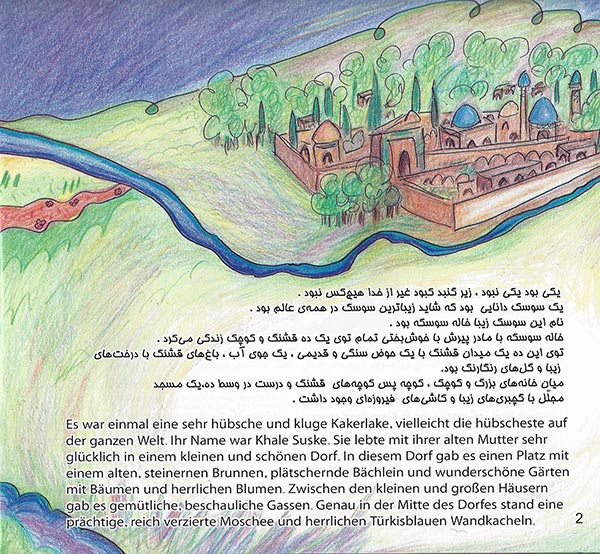 یکی بود یکی نبود ، زیر گنبد کبود غیر از خدا هیچ‌کس نبود .
یک سوسک دانایی بود که شاید زیباترین سوسک در همه‌ی عالم بود .
نام این سوسک زیبا خاله سوسکه بود .
خاله سوسکه با مادر پیرش با خوش‌بختی تمام توی یک ده قشنگ و کوچک زندگی می‌کرد .
توی این ده یک میدان قشنگ با یک حوض سنگی و قدیمی ، یک جوی آب ، باغ‌های قشنگ با درخت‌های
زیبا و گل‌های رنگارنگ بود.
میان خانه‌های بزرگ و کوچک ، کوچه پس کوچه‌های قشنگ و درست در وسط ده،یک مسجد
مجلّل با گچبری‌های زیبا و کاشی‌های فیروزه‌ای وجود داشت .
Es war einmal eine sehr hübsche und kluge Kakerlake, vielleicht die hübscheste auf
der ganzen Welt. Ihr Name war Khale Suske. Sie lebte mit ihrer alten Mutter sehr
glücklich in einem kleinen und schönen Dorf. In diesem Dorf gab es einen Platz mit
einem alten, steinernen Brunnen, plätschernde Bächlein und wunderschöne Gärten
mit Bäumen und herrlichen Blumen. Zwischen den kleinen und großen Häusern
gab es gemütliche, beschauliche Gassen. Genau in der Mitte des Dorfes stand eine
prächtige, reich verzierte Moschee und herrlichen Türkisblauen Wandkacheln.
2